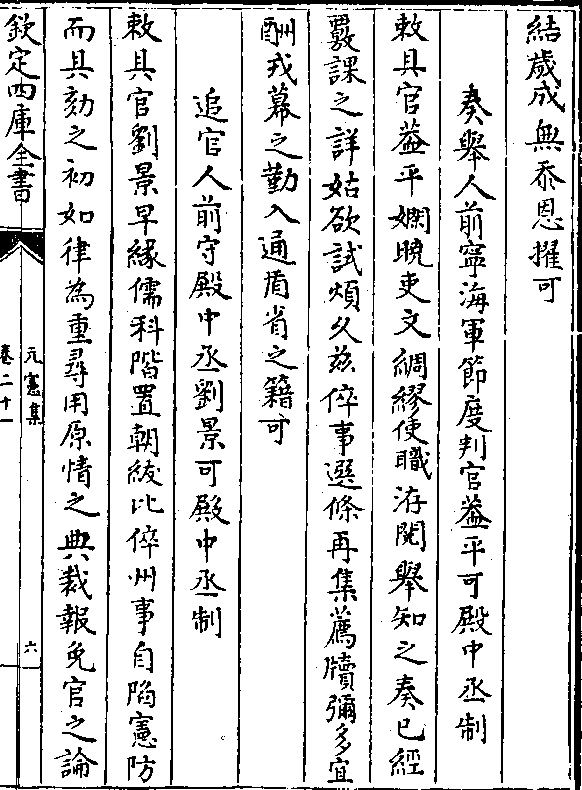 結歲成無忝恩擢可
奏舉人前寧海軍節度判官葢平可殿中丞制
敕具官葢平嫻曉吏文綢繆使職洊閱舉知之奏已經
覈課之詳姑欲試煩久茲倅事選條再集薦牘彌多宜
酬戎幕之勤入通盾省之籍可
追官人前守殿中丞劉景可殿中丞制
敕具官劉景早緣儒科階置朝紱比倅州事自陷憲防
而具劾之初如律為重尋用原情之典裁報免官之論
欽定四庫全書
元憲集
卷二十一
六